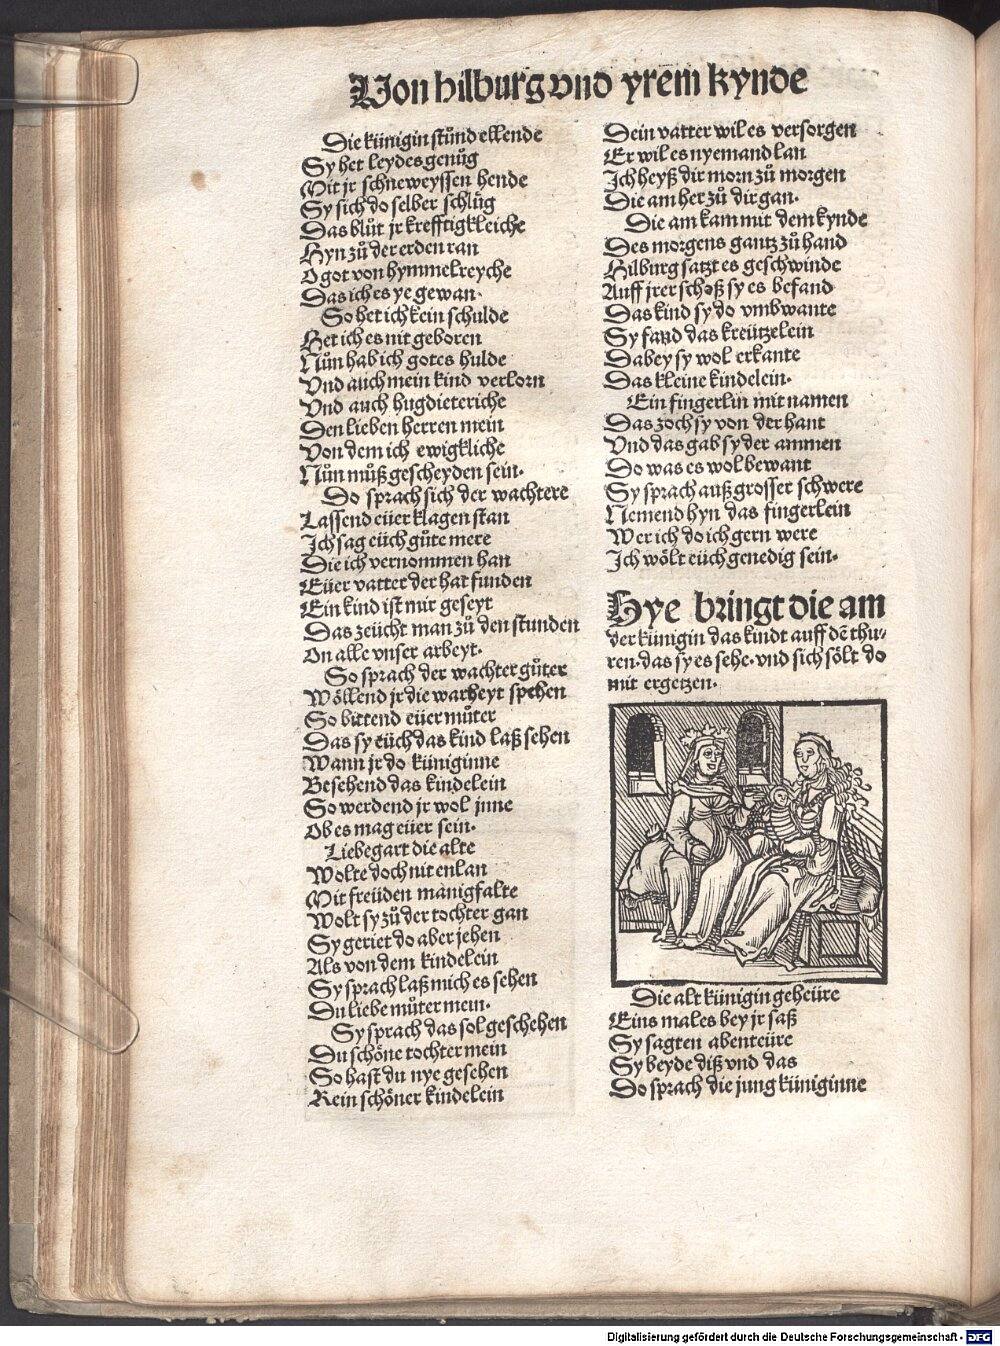 Von hilburg vnd yrem kynde
Die künigin stůnd ellende
Sy het leydes genůg
Mit jr schneweyssen hende
Sy sich do selber schlůg
Das blůt jr krefftigkleiche
Hyn zů der erden ran
O got von hymmelreyche
Das ich es ye gewan.
So het ich kein schulde
Het ich es nit geboren
Nůn hab ich gotes hulde
Vnd auch mein kind verlorn
Vnd auch hugdieteriche
Den lieben herren mein
Von dem ich ewigkliche
Nůn můß gescheyden sein.
Do sprach sich der wachtere
Lassend eüer klagen stan
Ich sag eüch gůte mere
Die ich vernommen han
Eüer vatter der hat funden
Ein kind ist mir geseyt
Das zeücht man zů den stunden
On alle vnser arbeyt.
So sprach der wachter gůter
Wöllend jr die warheyt spehen
So bittend eüer můter
Das sy eüch das kind laß sehen
Wann jr do küniginne
Besehend das kindelein
So werdend jr wol jnne
Ob es mag eüer sein.
Liebegart die alte
Wolte doch nit enlan
Mit freüden manigfalte
Wolt sy zů der tochter gan
Sy geriet do aber jehen
Als von dem kindelein
Sy sprach laß mich es sehen
Du liebe můter mein.
Sy sprach das sol geschehen
Du schöne tochter mein
So hast du nye gesehen
Kein schöner kindelein
Dein vatter wil es versorgen
Er wil es nyemand lan
Ich heyß dir morn zů morgen
Die am her zů dir gan.
Die am kam mit dem kynde
Des morgens gantz zů hand
Hilburg satzt es geschwinde
Auff jrer schoß sy es befand
Das kind sy do vmbwante
Sy fand das kreützelein
Dabey sy wol erkante
Das kleine kindelein.
Ein fingerlin mit namen
Das zoch sy von der hant
Vnd das gab sy der ammen
Do was es wol bewant
Sy sprach auß grosser schwere
Nemend hyn das fingerlein
Wer ich do ich gern were
Ich wölt eüch genedig sein.
Hye bringt die am
der künigin das kindt auff dē thu-
ren. das sy es sehe. vnd sich sölt do
mit ergetzen.
Die alt künigin geheüre
Eins males bey jr saß
Sy sagten abenteüre
Sy beyde diß vnd das
Do sprach die jung küniginne
Digitalisierung gefördert durch die Deutsche Forschungsgemeinschaft - DFG